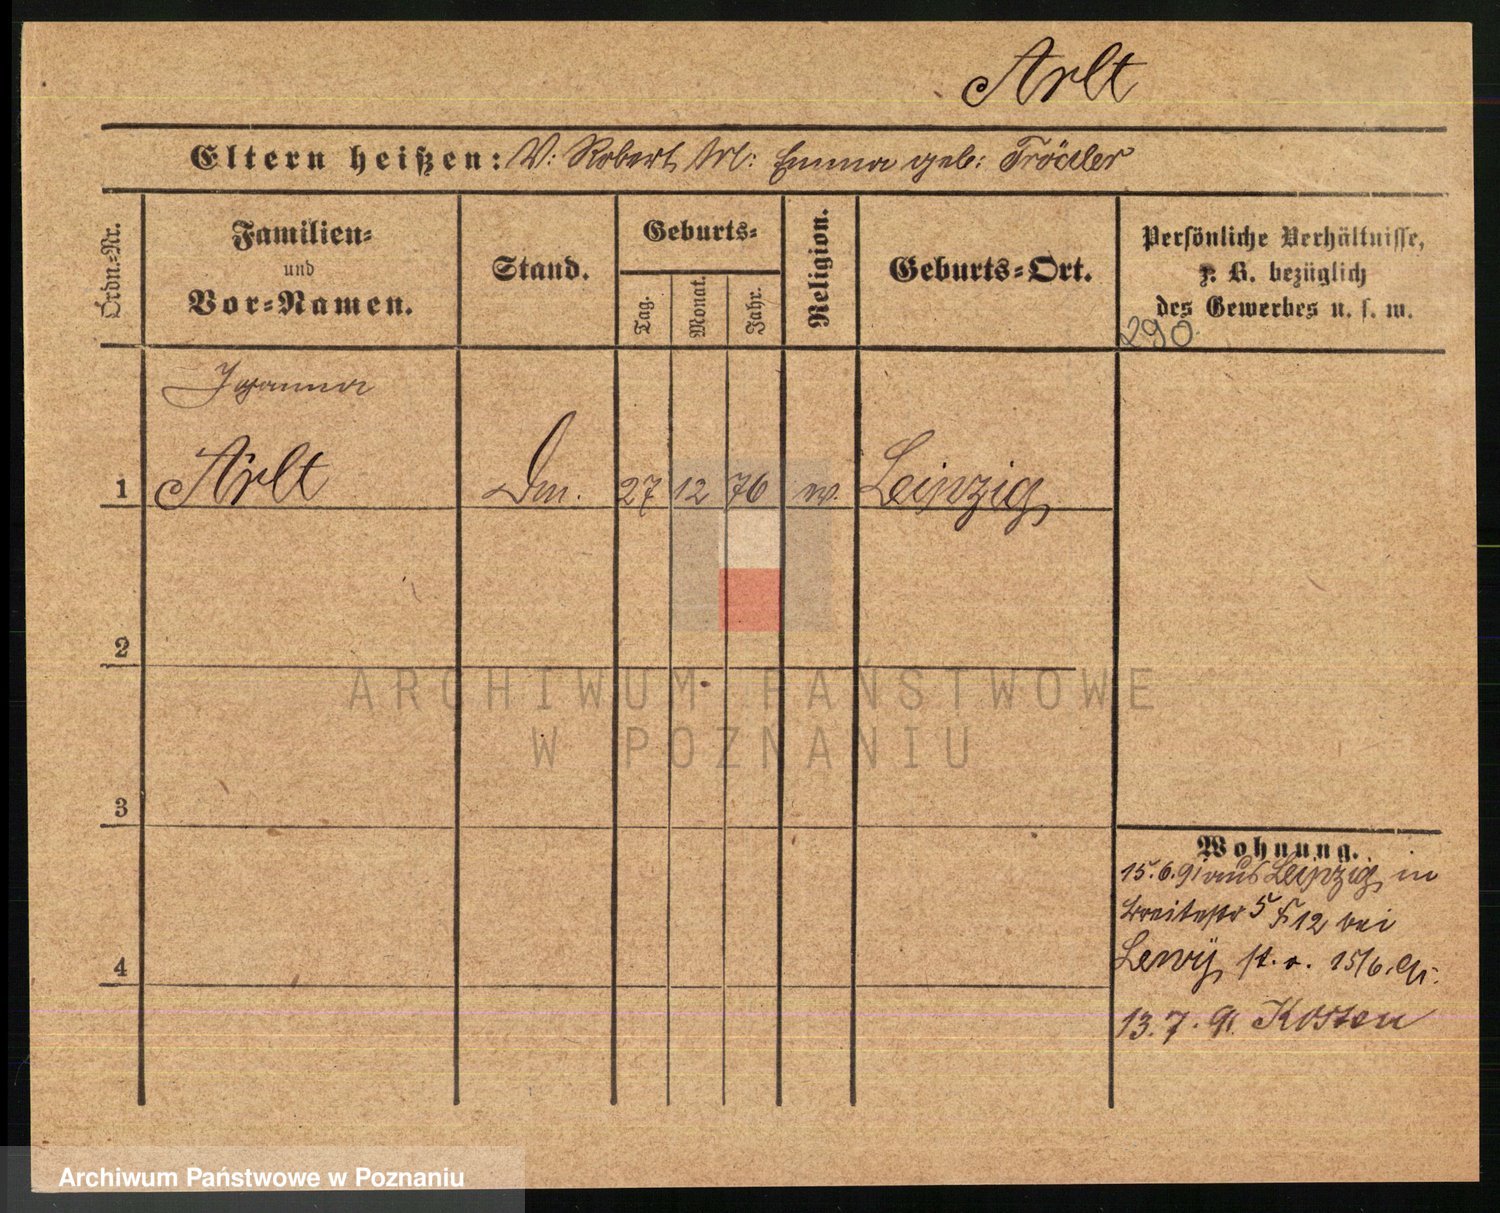 Arlt
Eltern heißen: V: Robert M: Emma geb: Trödler
Ordn.-Nr.
Familien-
und
Vor-Namen.
Stand.
Geburts-
Tag.
Monat.
Jahr.
Religion.
Geburts-Ort.
Persönliche Verhältnisse,
z. B. bezüglich
des Gewerbes u. s. w.
290
Joanna
1 Arlt 27 12 76 Leipzig
2
ARCHIWUM PAŃSTWOWE
W POZNANIU
3
Wohnung.
15.6.91 aus Leipzig in
Breitestr 5 12 bei
4
Lewÿ 15/6.91.
13.7.91. Kosten
Archiwum Państwowe w Poznaniu